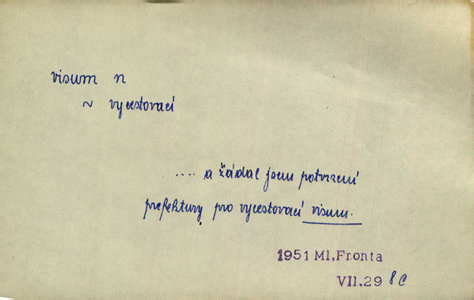 visum n
~ vycestovací
.... a žádal jsem potvrzení
prefektury pro vycestovací visum.
1951 Ml. Fronta
VII.29 8c